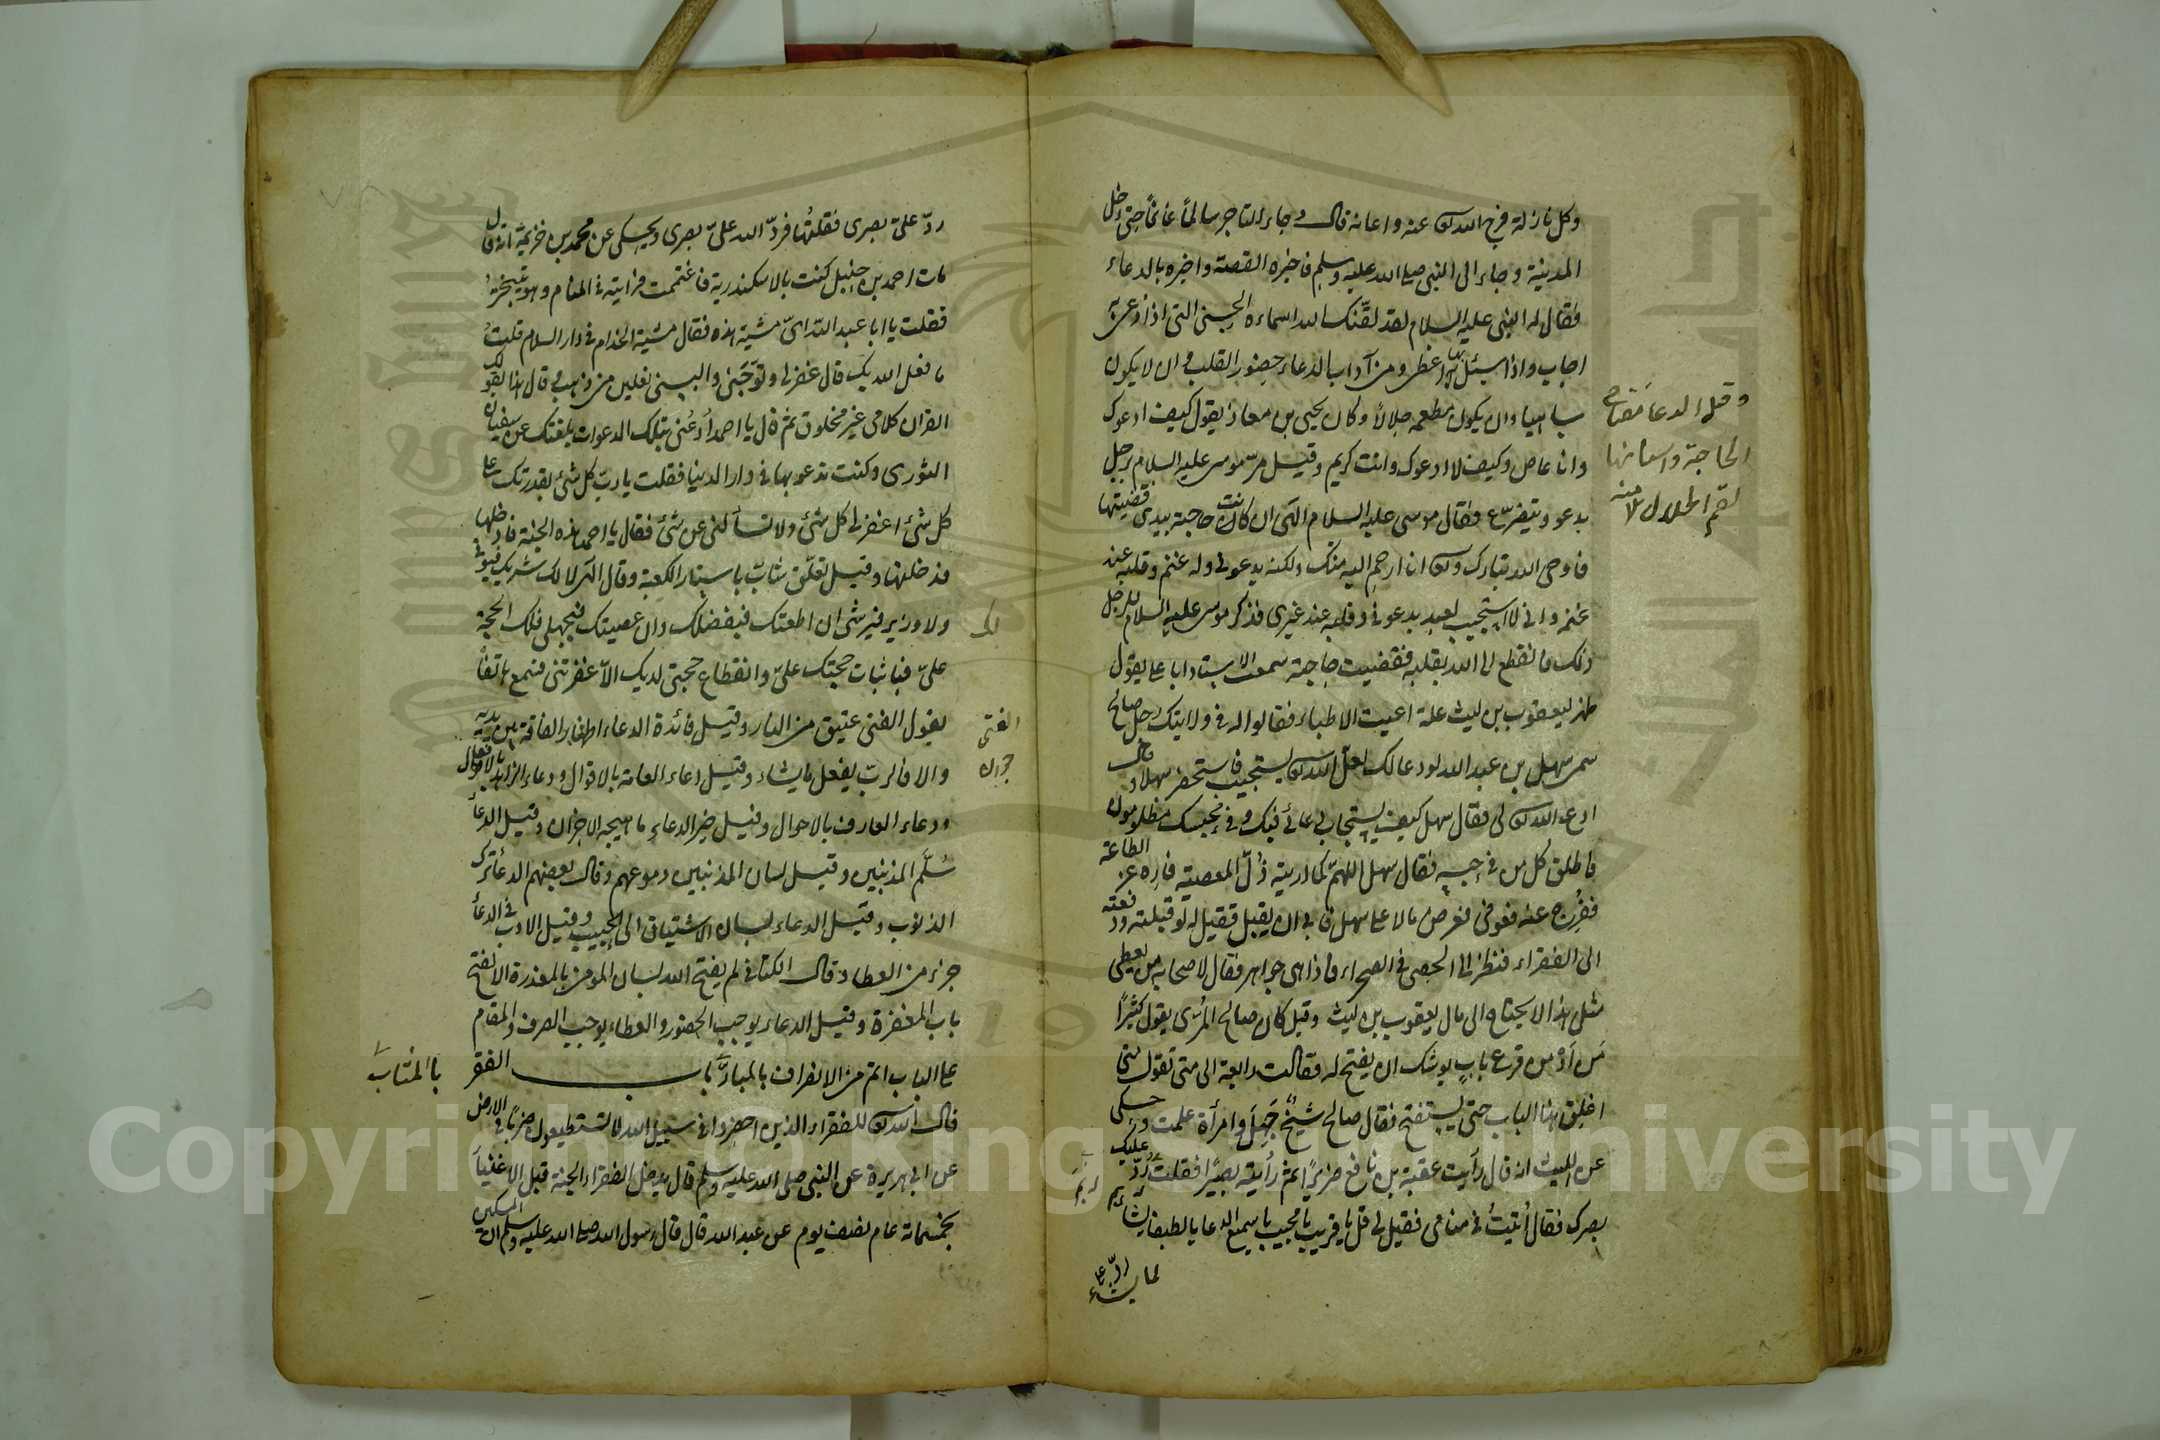 وكل نازلة فرج الله تعالى عنه واعانه قال وجاء التاجر سالماً غانماً حتى دخل
المدينة وجاء الى النبي صلى الله عليه وسلم فاخبره القصة واخبره بالدعاء
فقال له النبي عليه السلام لقد لقنك الله اسماءه الحسنى التي اذا دعي بها
اجاب واذا سئل بها اعطى ومن آداب الدعاء حضور القلب وان لا يكون
ساهيا وان يكون مطعمه حلالاً وكان يحيى بن معاذ يقول كيف ادعوك
وانا عاص وكيف لا ادعوك وانت كريم وقيل مرّ موسى عليه السلام برجل
يدعو ويتضرّع فقال موسى عليه السلام الهي ان كانت حاجته بيدي قضيتها
فاوحى الله تبارك وتعالى انا ارحم اليه منك ولكنه يدعوني وله غنم وقلبه عند
غنمه واني لا استجيب لعبد يدعوني وقلبه عند غيري فذكر موسى عليه السلام للرجل
ذلك فانقطع الى الله بقلبه فقضيت حاجته سمعت الاستاد ابا علي يقول
ظهر ليعقوب بن ليث علة اعيت الاطباء فقالوا له في ولايتك رجل صالح
سمى سهل بن عبد الله لو دعا لك لعل الله تعالى يستجيب فاستحضر سهلا وقال
ادع الله تعالى لي فقال سهل كيف يستجاب دعائي فيك وفي محبسك مظلومون
فاطلق كل من في حبسه فقال سهل اللهم كما اريته ذُلّ المعصية فاره عز الطاعة
ففُرّج عنه فعوفي فعرض مالا على سهل فابى ان يقبل فقيل له لو قبلته ودفعته
الى الفقراء فنظر الى الحصى في الصحراء فاذا هي جواهر فقال لاصحابه من يعطى
مثل هذا لا يحتاج الى مال يعقوب بن ليث وقيل كان صالح المرّي يقول كثيراً
مَن اَدْمن قرع باب يوشك ان يفتح له فقالت رابعة الى متى تقول متى
اغلق هذا الباب حتى يستفتح فقال صالح شيخٌ جَهِلَ وامرأة علمت وحكى
عن الليث انه قال رأيت عقبة بن نافع ضريراً ثم رأيته بصيراً فقلت بم رُدّ عليك
بصرك فقال اُتيتُ في منامي فقيل لي قل يا قريب يا مجيب يا سميع الدعا يا لطيفا
لما يشاء ردّ علي
وقيل الدعا مفتاح
الحاجة واسنانها
لقم الحلال
ردّ عليّ بصري فقلتُها فردّ الله عليّ بصري ويحكى عن محمد بن خزيمة انه قال
مات احمد بن حنبل كنت بالاسكندرية فاغتممت فرايته في المنام وهو يتبختر
فقلت يا ابا عبد الله ايّ مشية هذه فقال مشية الخدام في دار السلام قلت
ما فعل الله بك قال غفر لي وتوّجني والبسني نعلين من ذهب وقال هذا لقولك
القران كلامي غير مخلوق ثم قال يا احمد اُدعُني بتلك الدعوات بلغتك عن سفيان
الثوري وكنت تدعو بها في دار الدنيا فقلت يا ربّ كل شئ بقدرتك على
كل شئ اغفر لي كل شئ ولا تسألني عن شئ فقال يا احمد هذه الجنة فادخلها
فدخلتها وقيل تعلّق شابّ باستار الكعبة وقال الهي لا لك شريك فيؤتى
ولا وزير فيرشى ان اطعتك فبفضلك وان عصيتك فبجهلي فلك الحجة
عليّ فباثبات حجتك عليّ وانقطاع حجتي لديك الاّ غفرت لي فسمع هاتفاً
يقول الفتى عتيق من النار وقيل فائدة الدعاء اظهار الفاقة بين يديه
والا فالرب يفعل ما يشاء وقيل دعاء العامة بالاقوال ودعاء الزاهد بالافعال
ودعاء العارف بالاحوال وقيل خير الدعاء ما هيجه الاحزان وقيل الدعأ
سُلّم المذنبين وقيل لسان المذنبين دموعهم وقال بعضهم الدعأ ترك
الذنوب وقيل الدعاء لسان الاشتياق الى الحبيب وقيل الادب في الدعأ
خير من العطاء وقال الكتاني لم يفتح الله لسان المومن بالمعذرة الا لفتح
باب المغفرة وقيل الدعاء يوجب الحضور والعطاء يوجب الصرف والمقام
على الباب اتم من الانصراف بالمبارّ باب الفقر
قال الله تعالى للفقراء الذين احصروا في سبيل الله لا يستطيعون ضربا في الارض
عن ابي هريرة عن النبي صلى الله عليه وسلم قال يدخل الفقراء الجنة قبل الاغنيآ
بخمسمائة عام نصف يوم عن عبد الله قال قال رسول الله صلى الله عليه وسلم ان المسكين
الفتى
بالمثابَ
Copyright © King Saud University